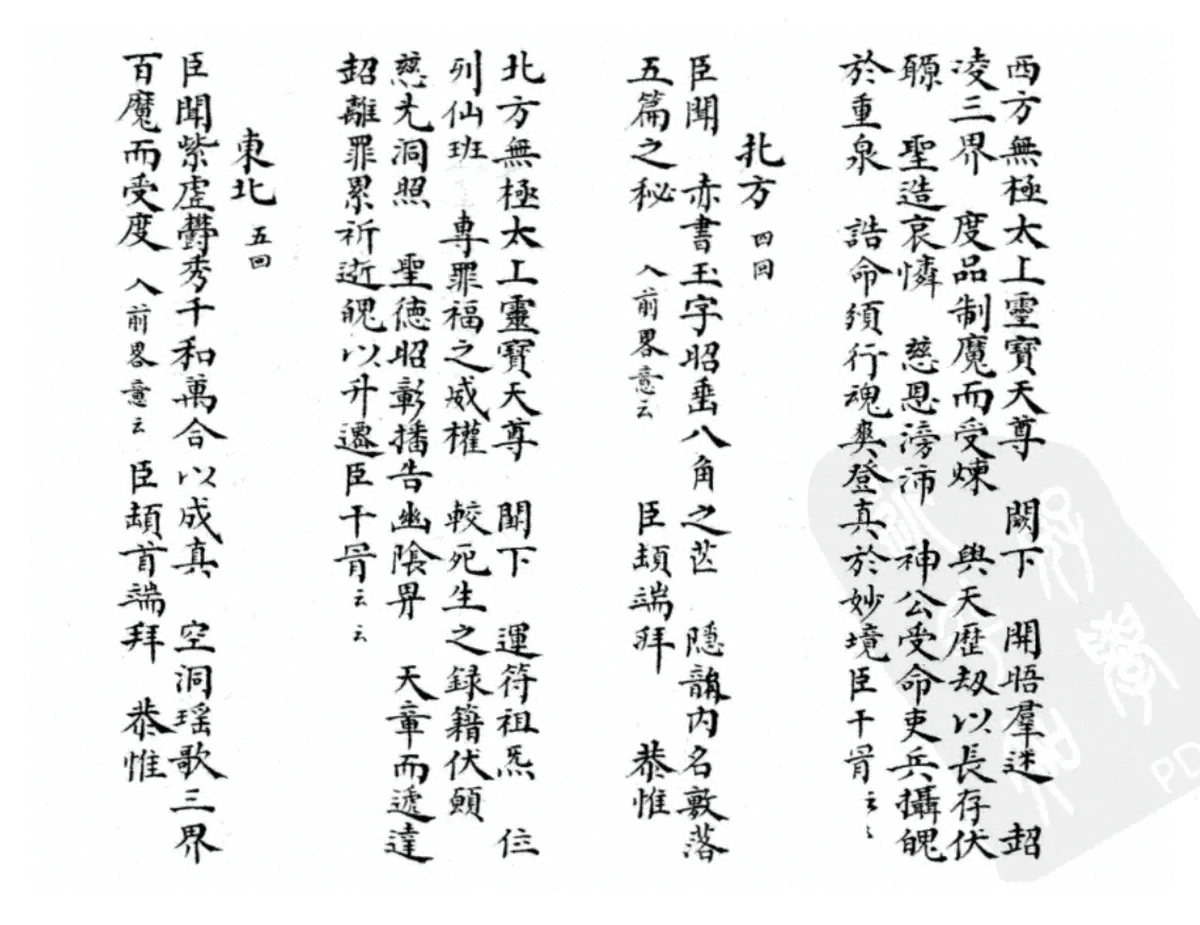 西方無極太上靈寶天尊　闕下　開悟羣迷　超
凌三界　度品制魔而受煉　與天歷劫以長存伏
願　聖造哀憐　慈恩滂沛　神公受命吏兵攝魄
於重泉　誥命須行魂爽登真於妙境臣干冐云々
北方 四回
臣聞　赤書玉字昭垂八角之芒　隱韻內名敷落
五篇之秘　入前畧意云　臣頓端拜　恭惟
北方無極太上靈寶天尊　闕下　運符祖炁　位
列仙班　專罪福之威權　較死生之録籍伏願
慈光洞照　聖德昭彰播告幽陰界　天章而遞達
超離罪累祈逝魄以升遷臣干冐云云
東北 五回
臣聞紫虛欝秀千和萬合以成真　空洞瑶歌三界
百魔而受度　入前畧意云　臣頓首端拜　恭惟